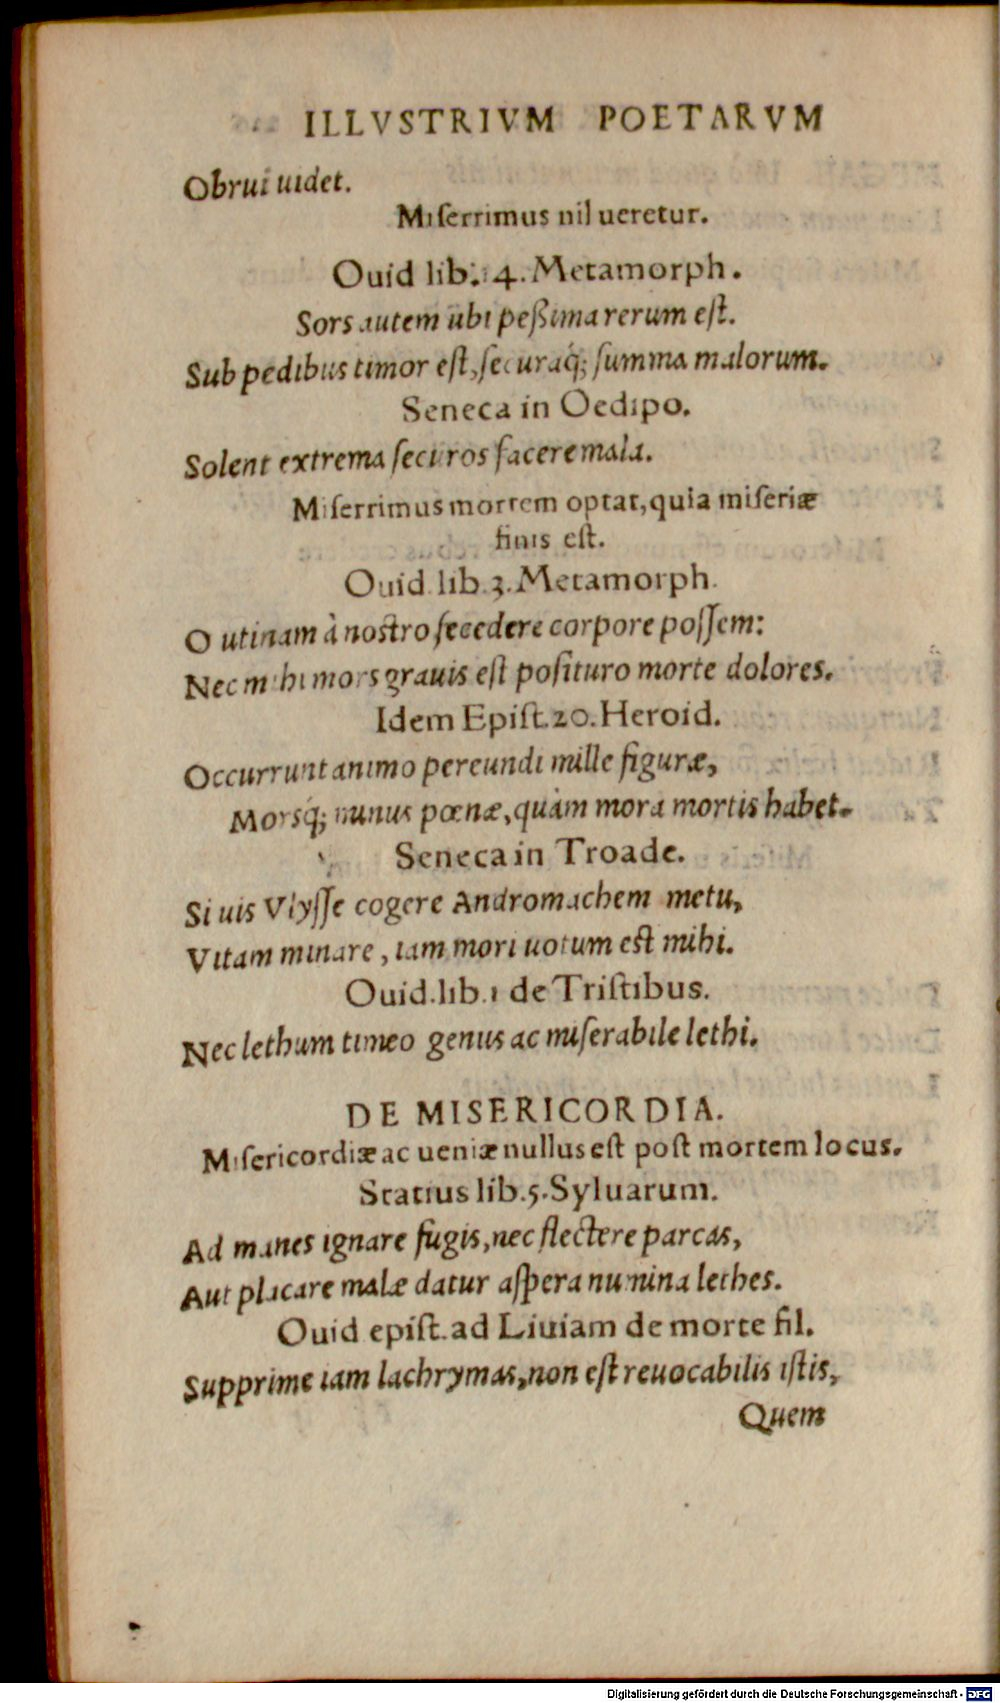 ILLVSTRIVM POETARVM
Obrui uidet.
Miſerrimus nil ueretur.
Ouid lib. 4. Metamorph.
Sors autem ubi peßima rerum eſt.
Sub pedibus timor eſt, ſecuraq́; ſumma malorum.
Seneca in Oedipo.
Solent extrema ſecuros facere mala.
Miſerrimus mortem optat, quia miſeriæ
finis eſt.
Ouid. lib. 3. Metamorph.
O utinam à nostro ſecedere corpore poſſem:
Nec mihi mors grauis eſt poſituro morte dolores.
Idem Epiſt. 20. Heroid.
Occurrunt animo pereundi mille figuræ,
Morsq́; minus pœnæ, quàm mora mortis habet.
Seneca in Troade.
Si uis Vlyſſe cogere Andromachem metu,
Vitam minare, iam mori uotum est mihi.
Ouid. lib. 1 de Triſtibus.
Nec lethum timeo genus ac miſerabile lethi.
DE MISERICORDIA.
Miſericordiæ ac ueniæ nullus eſt poſt mortem locus.
Statius lib. 5. Syluarum.
Ad manes ignare fugis, nec flectere parcas,
Aut placare malæ datur aſpera numina lethes.
Ouid epiſt. ad Liuiam de morte fil.
Supprime iam lachrymas, non eſt reuocabilis iſtis,
Quem
Digitalisierung gefördert durch die Deutsche Forschungsgemeinschaft - DFG